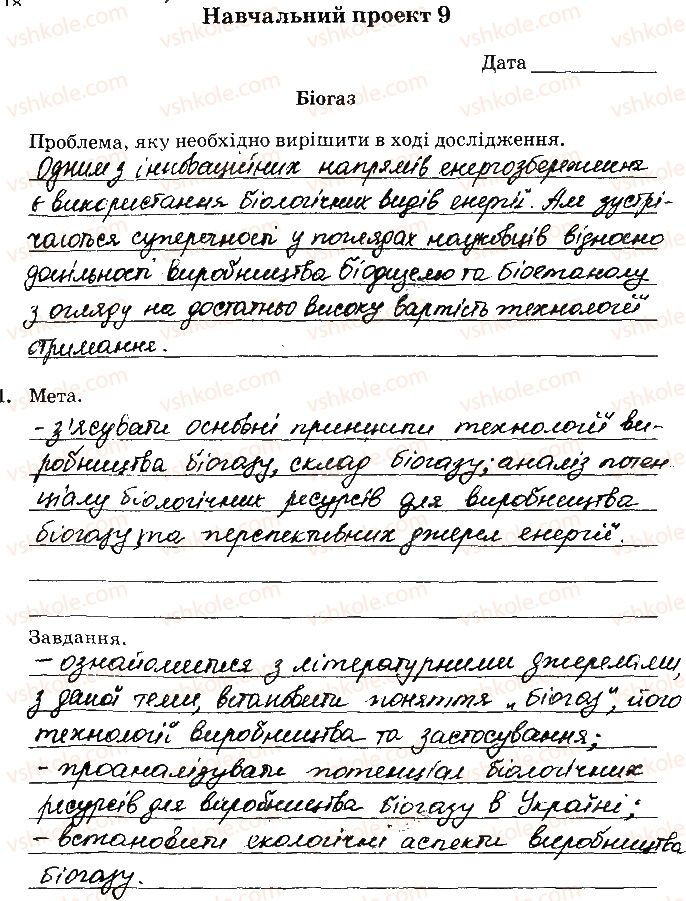 18
Навчальний проект 9
Дата
Біогаз
Проблема, яку необхідно вирішити в ході дослідження.
Одним з інноваційних напрямів енергозбереження
є використання біологічних видів енергії. Але зустрі-
чаються суперечності у поглядах науковців відносно
доцільності виробництва біодизелю та біоетанолу
з огляду на достатньо високу вартість технології
отримання.
1. Мета.
- з'ясувати основні принципи технології ви-
робництва біогазу, склад біогазу; аналіз потен
ціалу біологічних ресурсів для виробництва
біогазу, та перспективних джерел енергії.
Завдання.
- ознайомитися з літературними джерелами,
з даної теми, встановити поняття „біогаз", його
технології виробництва та застосування;
- проаналізувати потенціал біологічних
ресурсів для виробництва біогазу в Україні;
- встановити екологічні аспекти виробництва
біогазу.